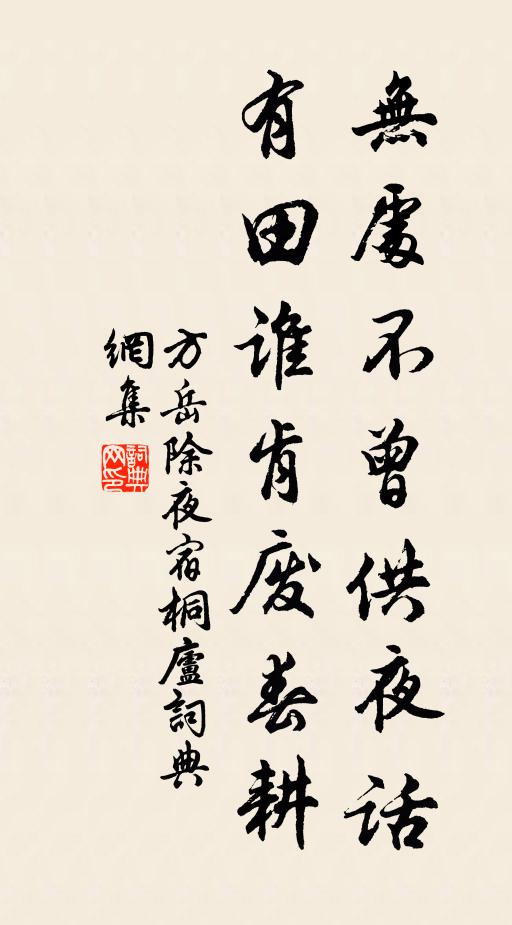 無處不曾供夜話
有田誰肯废春耕
方岳除夜宿桐廬詞典
網集
詞典
网印